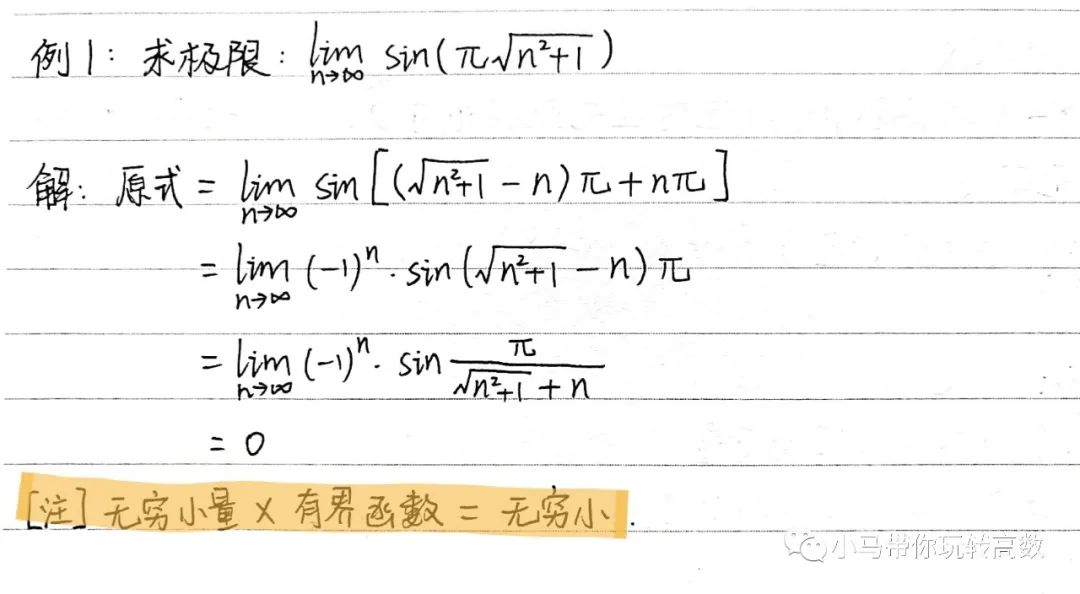 例1: 求极限: lim n→∞ sin(π√(n²+1))
解: 原式 = lim n→∞ sin[(√(n²+1) - n)π + nπ]
= lim n→∞ (-1)ⁿ · sin(√(n²+1) - n)π
= lim n→∞ (-1)ⁿ · sin π/(√(n²+1) + n)
= 0
[注] 无穷小量 × 有界函数 = 无穷小.
小马带你玩转高数